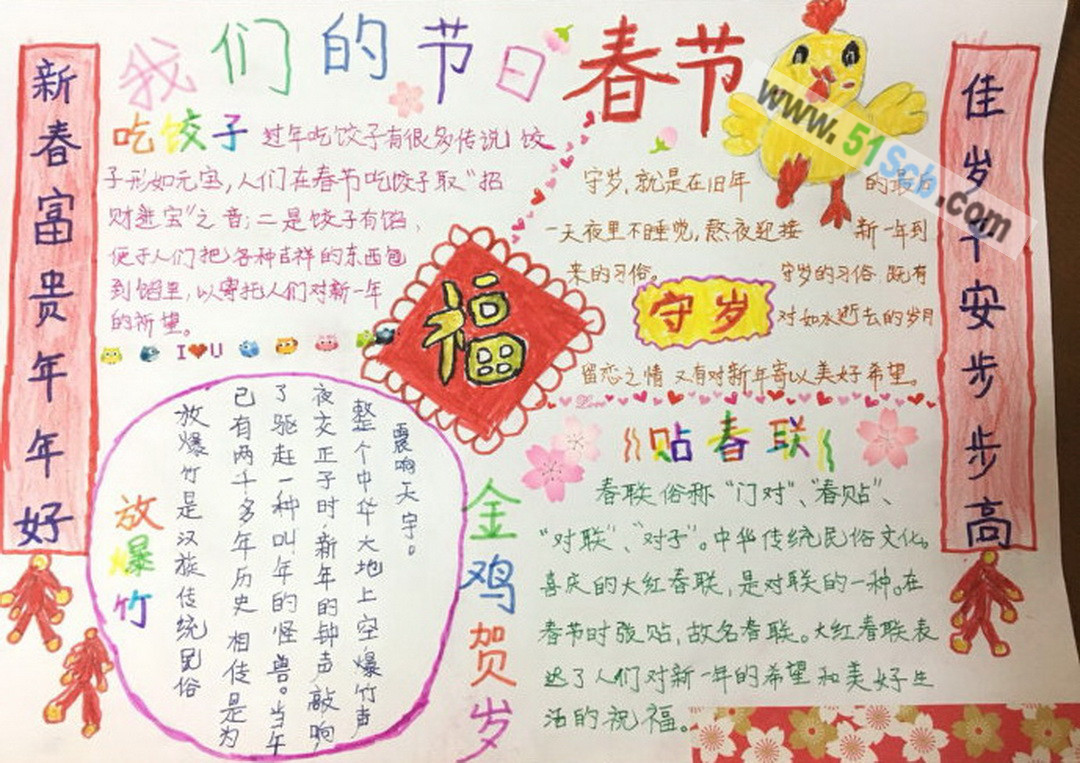 我们的节日
春节
新春富贵年年好
佳岁平安步步高
吃饺子 过年吃饺子有很多传说,饺
子形如元宝,人们在春节吃饺子取"招
财进宝"之音;二是饺子有馅,
便于人们把各种吉祥的东西包
到馅里,以寄托人们对新一年
的祈望。
I❤U
福
守岁,就是在旧年 的最后
一天夜里不睡觉,熬夜迎接 新一年到
来的习俗。 守岁的习俗,既有
守岁
对如水逝去的岁月
留恋之情又有对新年寄以美好希望。
Love
放爆竹
放爆竹是汉族传统民俗
已有两千多年历史 相传是为
了驱赶一种叫年的怪兽。当年
夜交正子时,新年的钟声敲响
整个中华大地上空爆竹声
震响天宇。
金鸡贺岁
贴春联
春联俗称"门对"、"春贴"、
"对联"、"对子"。中华传统民俗文化。
喜庆的大红春联,是对联的一种。在
春节时张贴,故名春联。大红春联表
达了人们对新一年的希望和美好生
活的祝福。
www.51Scb.com